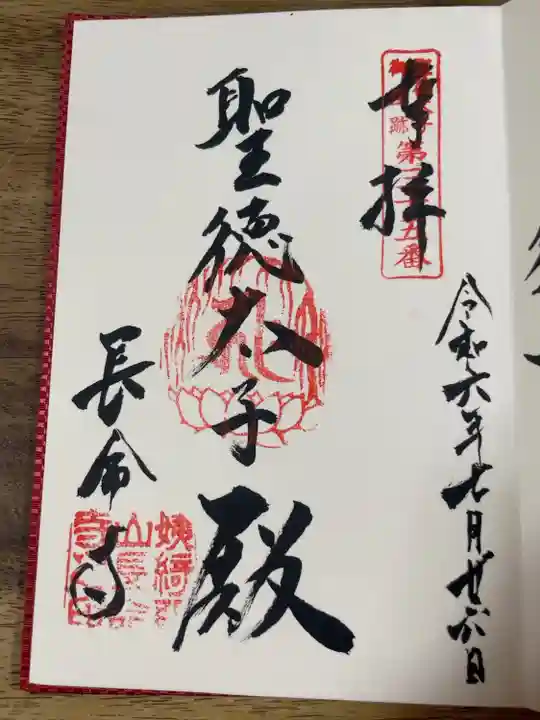 奉拝
跡 第 五番
令和六年七月廿六日
聖徳太子殿
長命寺
姨綺
山長